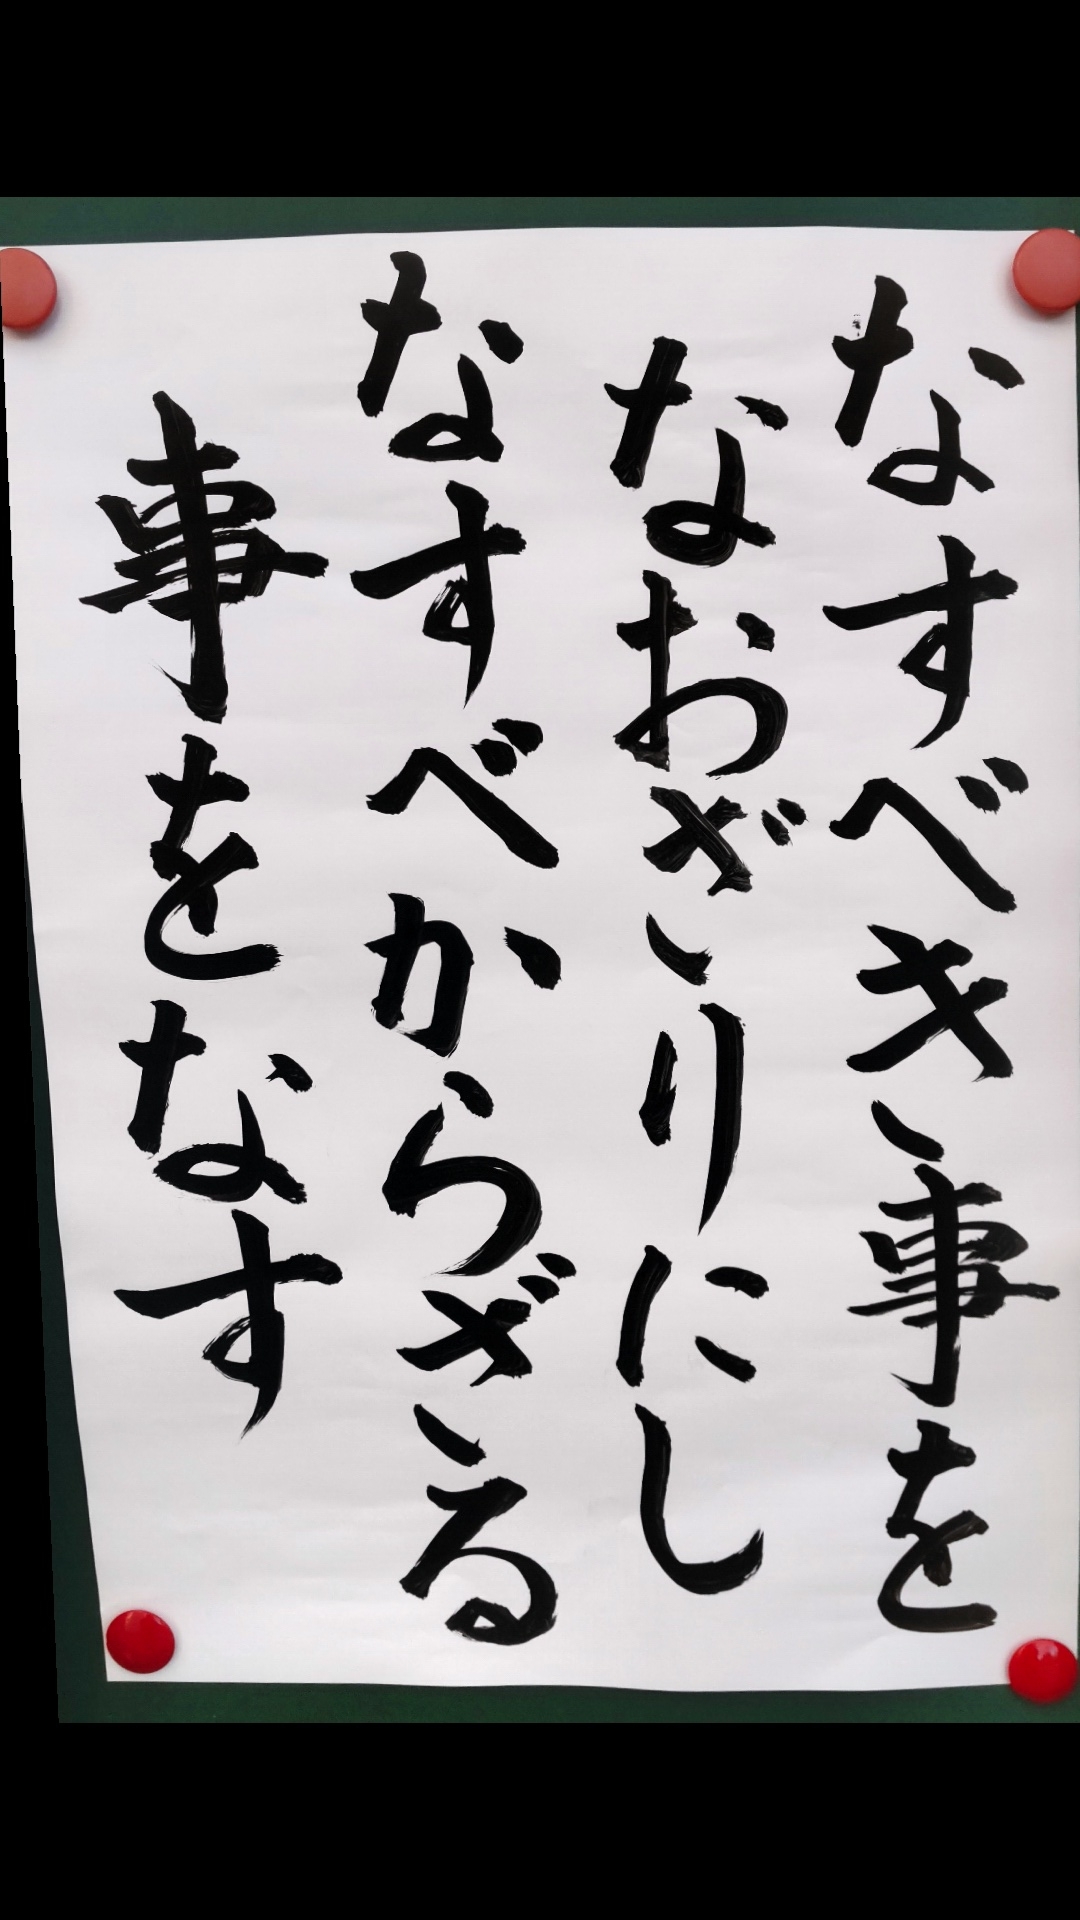 なすべき事を
なおざりにし
なすべからざる
事をなす